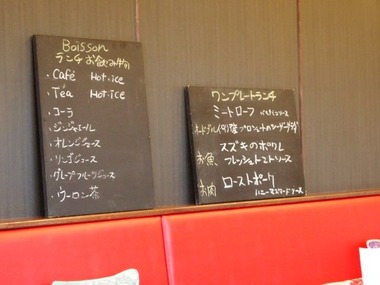 Boisson
ランチお飲み物
・Café Hot・ice
・Téa Hot・ice
・コーラ
・ジンジャエール
・オレンジジュース
・リンゴジュース
・グレープフルーツジュース
・ウーロン茶
ワンプレートランチ
ミートローフ
スズキのポワレ
お魚、フレッシュトマトソース
お肉 ローストポーク
ハニーマスタードソース